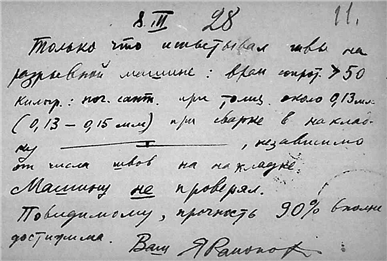 8 III 28 11.
Только что испытывал швы на
разрывной машине: врем. сопрот. > 50
килогр.: пог. сант. при толщ. около 0,13 мм
(0,13 – 0,15 мм) при сварке в наклад-
ку, независимо
от числа швов на накладке
Машину не проверял.
Повидимому, прочность 90% вполне
достижима. Ваш